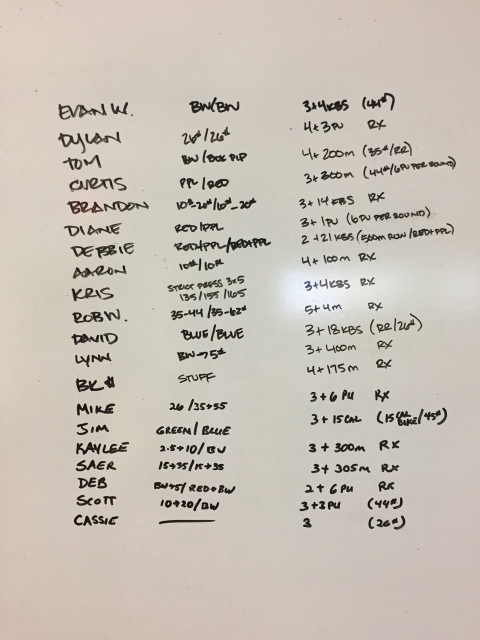 EVAN W. BW/BW 3+4KBS (44#)
DYLAN 26#/26# 4+3PU RX
TOM BW/ PLP 4+200m (35#/RR)
CURTIS PPL/RED 3+300m (44#/6PU PER ROUND)
BRANDON 10#-20#/10#-20# 3+14KBS RX
DIANE RED/PPL 3+1PU (6PU PER ROUND)
DEBBIE RED+PPL/RED+PPL 2+21KBS (500m ROW/RED+PPL)
AARON 10#/10# 4+100m RX
KRIS STRICT PRESS 3x5 135/155/165 3+4KBS RX
ROB W. 35-44/35-62# 5+4m RX
DAVID BLUE/BLUE 3+18KBS (RR/26#)
LYNN BW→5# 3+400m RX
BK$ STUFF 4+175m RX
MIKE 26/35+55 3+6PU RX
JIM GREEN/BLUE 3+15CAL (15CAL BIKE/45#)
KAYLEE 2.5+10/BW 3+300m RX
SAER 15+35/15+35 3+305m RX
DEB BW+5/RED+BW 2+6PU RX
SCOTT 10+20/BW 3+3PU (44#)
CASSIE 3 (26#)